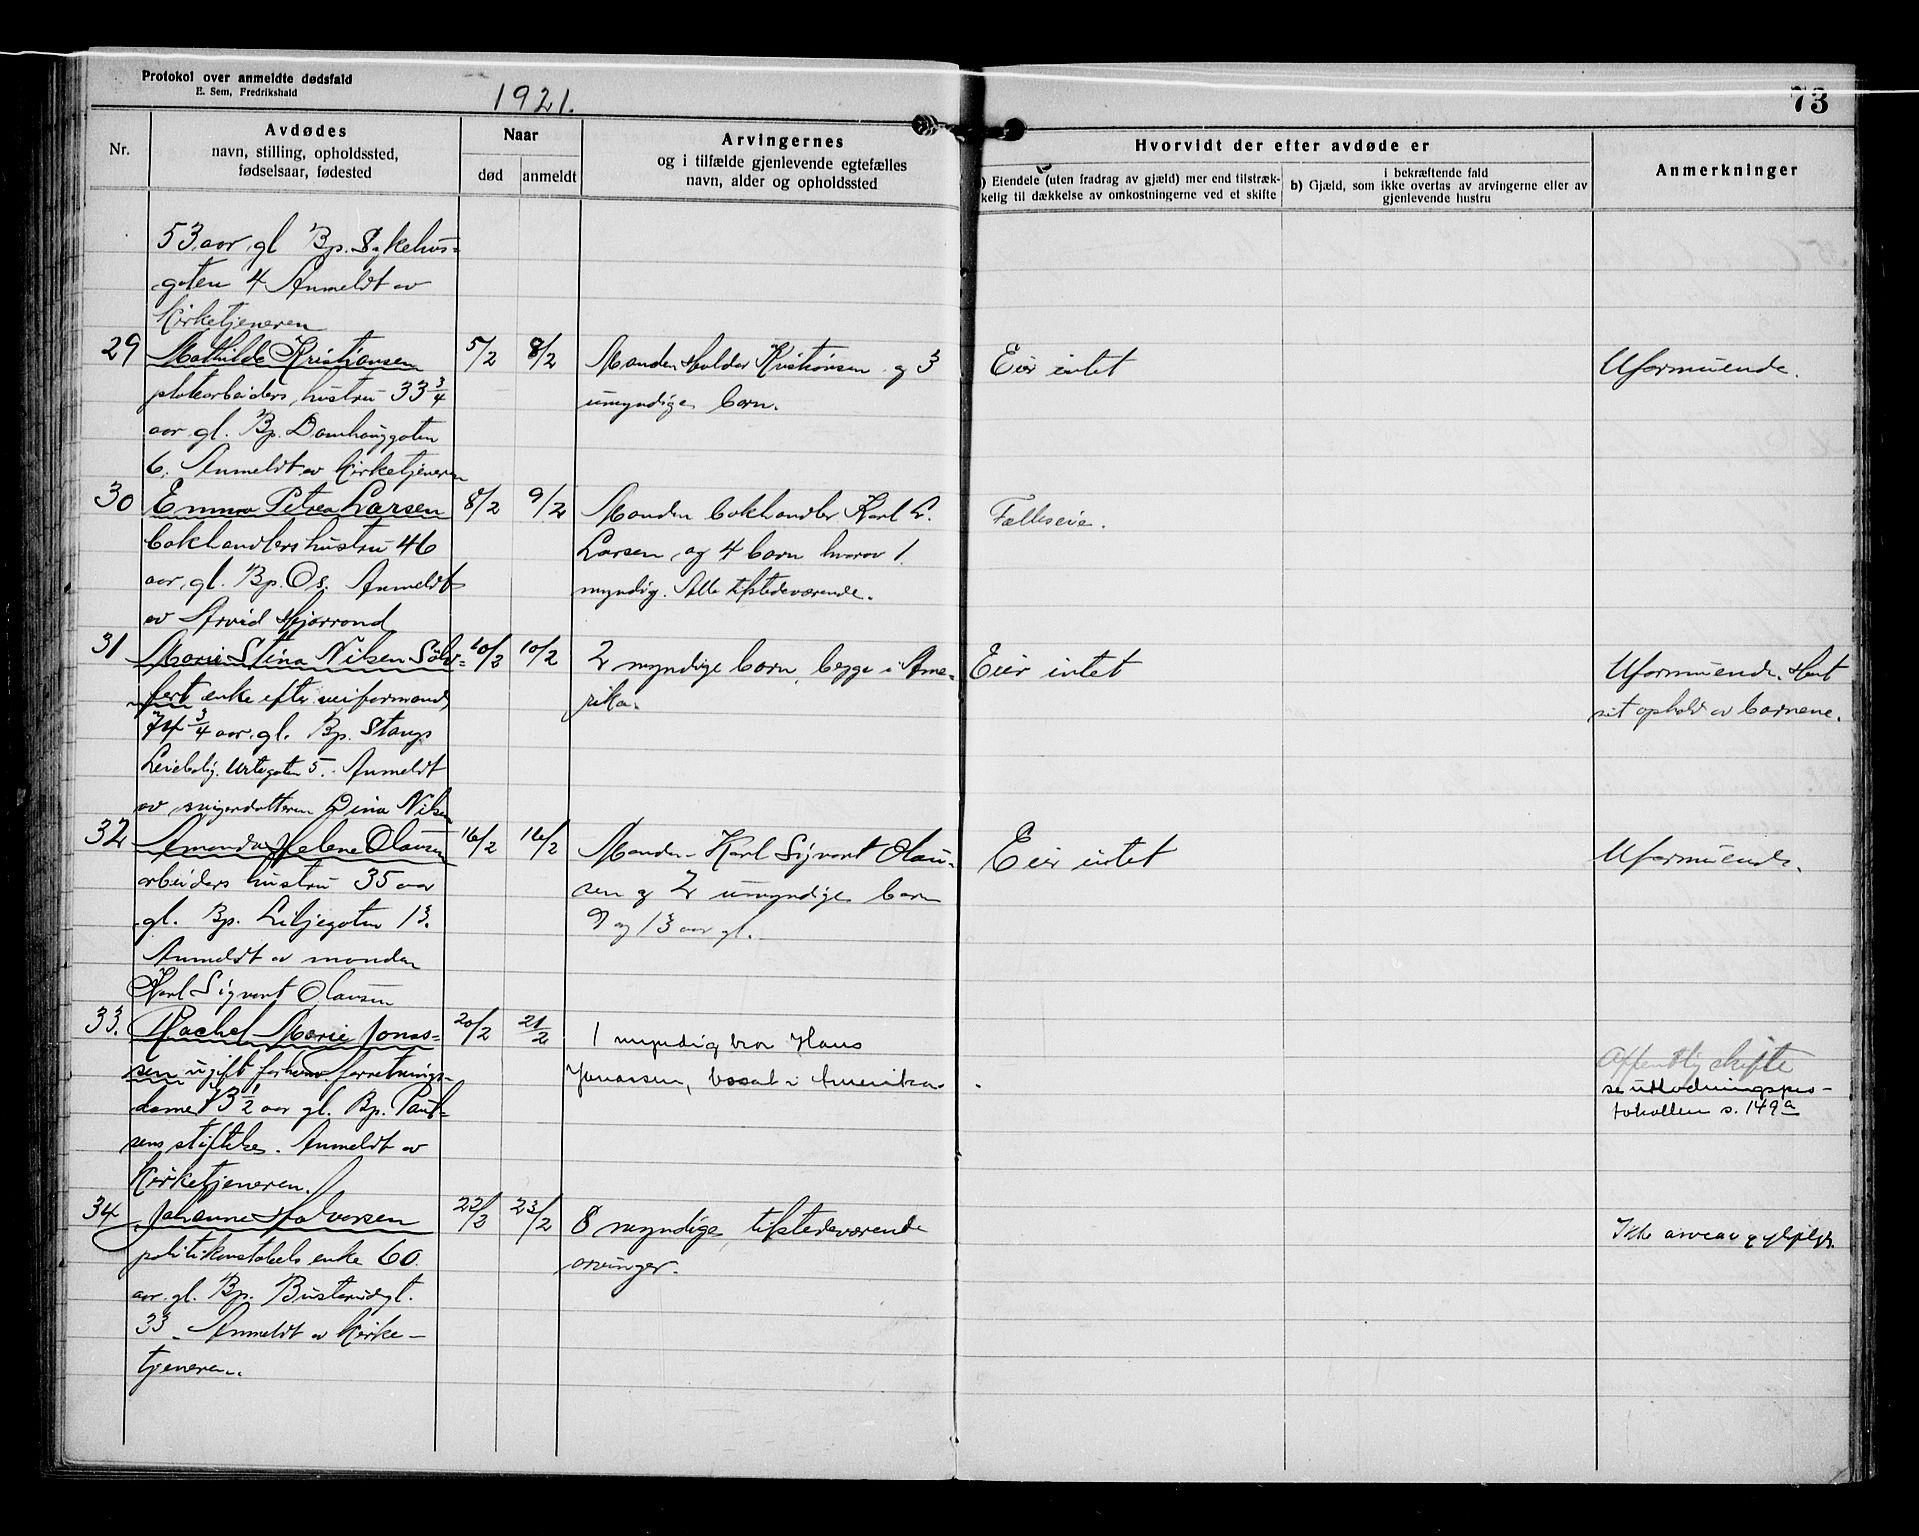 Protokol over anmeldte dødsfald
E. Sem, Fredrikshald
1921.
73
Nr.
Avdødes
navn, stilling, opholdssted,
fødselsaar, fødested
Naar
død
anmeldt
Arvingernes
og i tilfælde gjenlevende egtefælles
navn, alder og opholdssted
Hvorvidt der efter avdøde er
a) Eiendele (uten fradrag av gjæld) mer end tilstræk-
kelig til dækkelse av omkostningerne ved et skifte
i bekræftende fald
b) Gjæld, som ikke overtas av arvingerne eller av
gjenlevende hustru
Anmerkninger
53 aar gl Bp. Sykehus-
gaten 4 Anmeldt av
Kirketjeneren
29
Mathilde Kristiansen
platearbeiders hustru 33 3/4
aar gl. Bp. Damhauggaten
6. Anmeldt av Kirketjeneren
5/2
8/2
Manden Haldor Kristiansen og 3
umyndige barn.
Eier intet
Uformuende.
30
Emma Petrea Larsen
bokhandlers hustru 46
aar gl. Bp. Os. Anmeldt
av Arvid
8/2
9/2
Manden bokhandler Karl L.
Larsen og 4 barn hvorav 1
myndig. Alle tilstedeværende.
Fælleseie.
31
Marie Stina Nilsen Sölf-
fert enke efter veiformand,
74 3/4 aar gl. Bp. Stangs
Leiebolig Urtegaten 5. Anmeldt
av svigerdatteren Dina Nilsen
10/2
10/2
2 myndige barn, begge i Ame-
rika.
Eier intet
Uformuende. Hat
sit ophold av barnene.
32
Amanda Helene Olausen
arbeiders hustru 35 aar
gl. Bp. Liljegaten 13.
Anmeldt av manden
Karl Sigvart Olausen
16/2
16/2
Manden Karl Sigvart Olau-
sen og 2 umyndige barn
9 og 13 aar gl.
Eier intet
Uformuende.
33.
Rachel Marie Jonas-
sen ugift forhenv. forretnings-
dame 73 1/2 aar gl. Bp. Paul-
sens stiftelse. Anmeldt av
Kirketjeneren.
20/2
21/2
1 myndig bror Hans
Jonassen, bosat i Amerika.
Offentlig skifte
se utlodningspro-
tokollen s. 149a
34
Johanne Halvorsen
politikonstabels enke 60
aar gl. Bp. Busterudgt.
33. Anmeldt av Kirke-
tjeneren.
22/2
23/2
8 myndige, tilstedeværende
arvinger.
Ikke arveavgiftpligt.